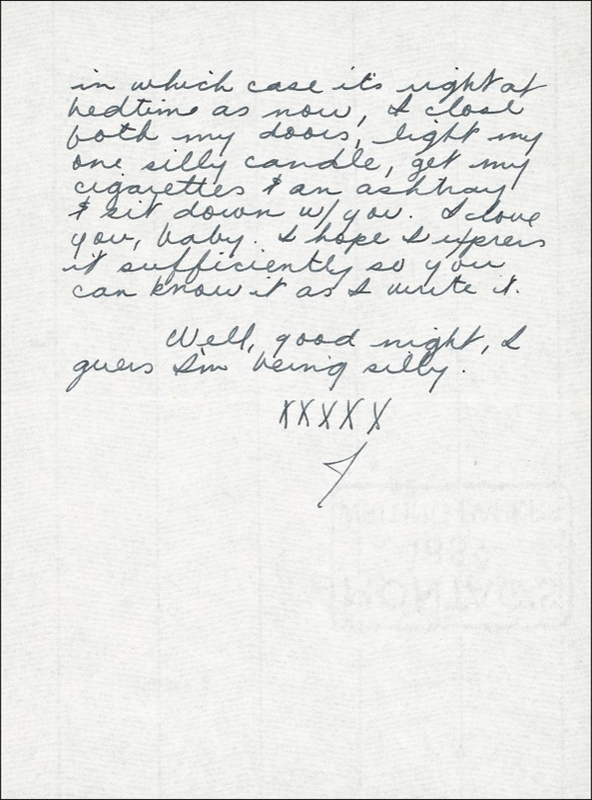 in which case it's right at
bedtime as now, I close
both my doors, light my
one silly candle, get my
cigarettes & an ashtray
& sit down w/ you. I love
you, baby. I hope I express
it sufficiently so you
can know it as I write it.
Well, good night, I
guess I'm being silly.
XXXXX
J